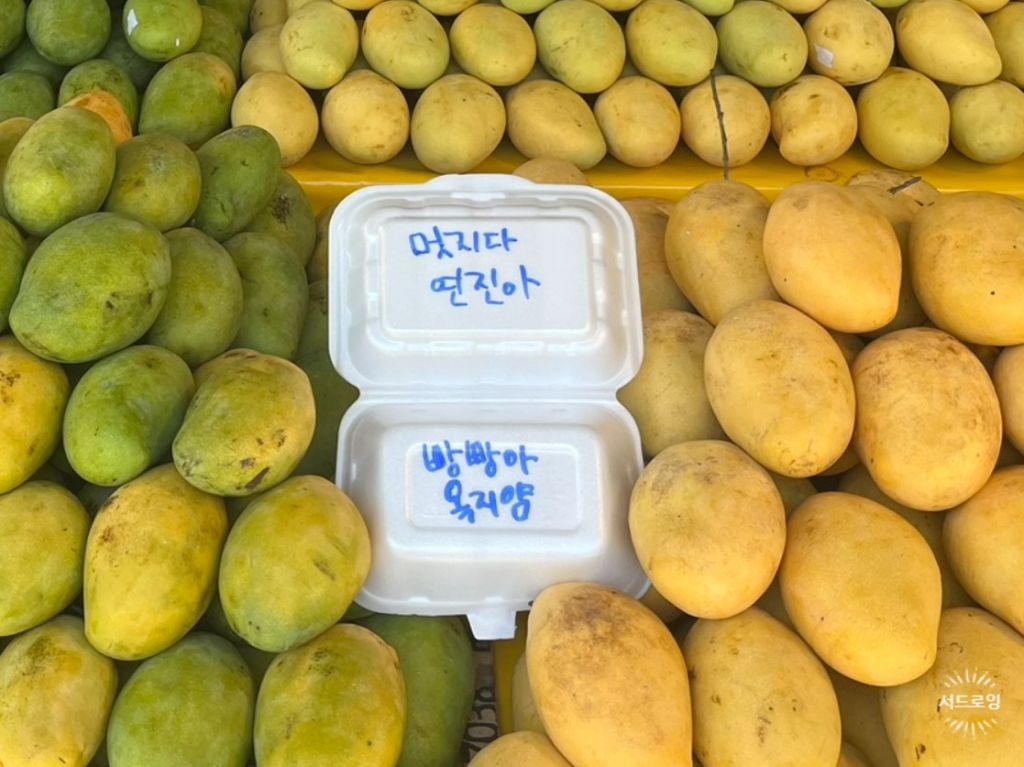 멋지다
연진아
빵빵아
옥지얌
7038
서드로잉